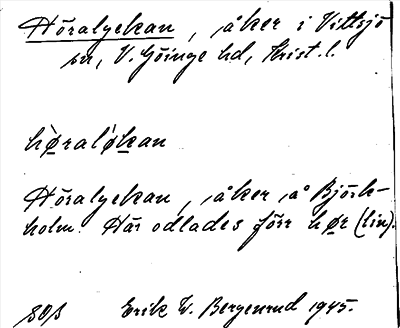 Höralyckan, åker i Vittsjö
sn, V. Göinge hd, Krist. l.
hø̀ralø̀kan
Höralyckan, åker å Björk-
holm. Här odlades förr hør (lin).
Erik W. Bergenrud 1945.